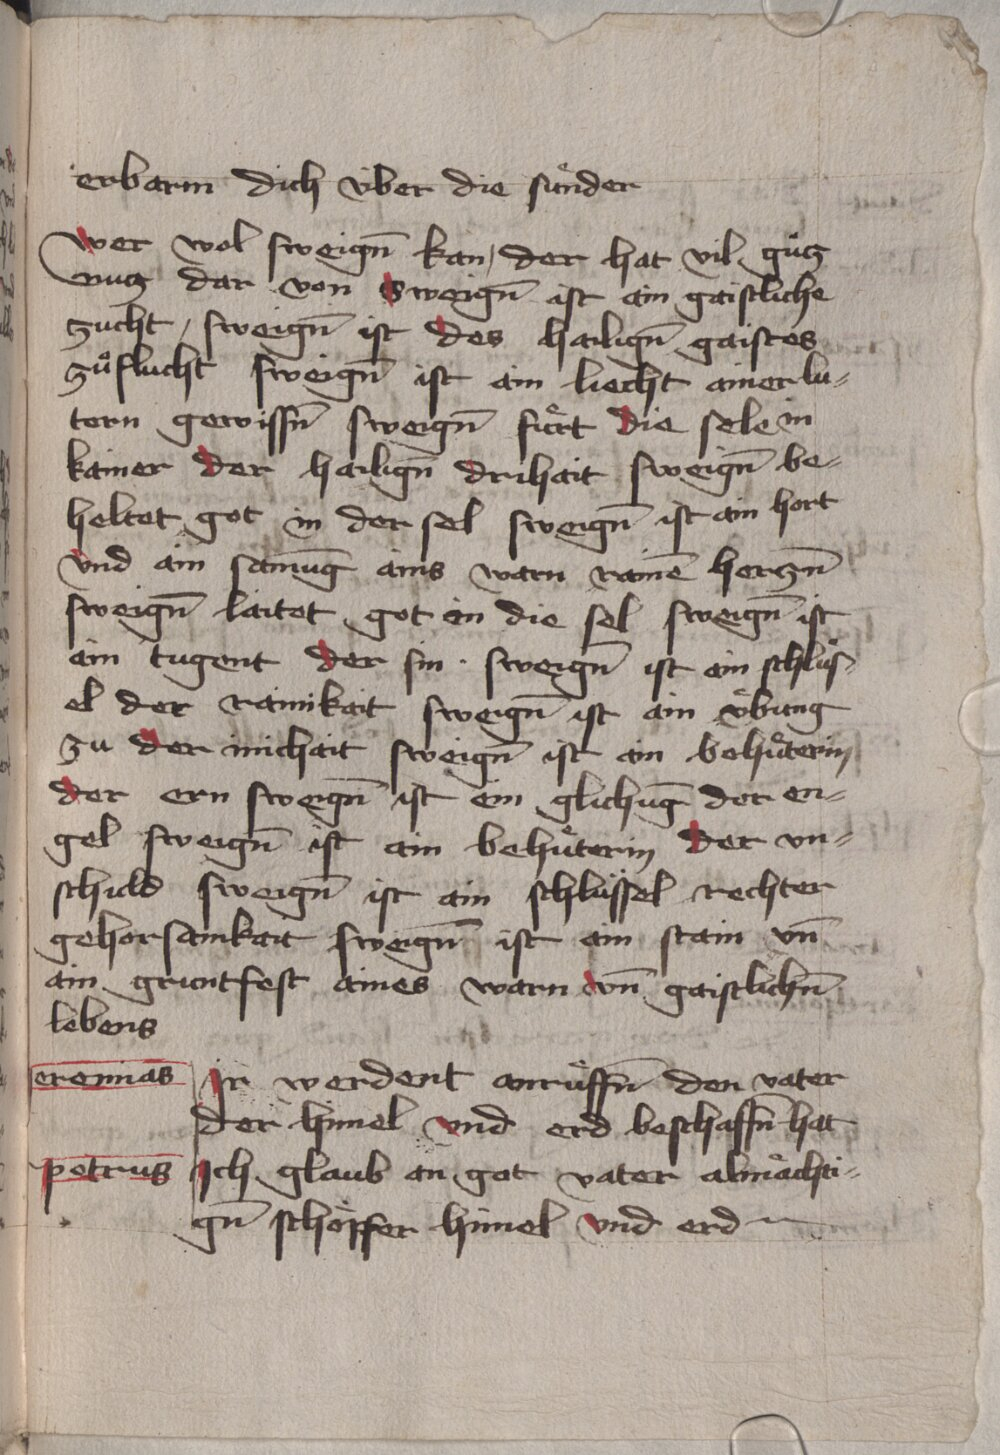 erbarm dich über die sünder
wer wol sweign̄ kan / der hat vil gůtz
nutz dar von Sweign̄ ist ain gaistliche
zucht / sweign̄ ist des hailign̄ gaistes
zůflucht sweign̄ ist ain liecht ainer lu-
tern gewissn̄ sweign̄ fürt die sele in
kamer der hailign̄ drihait sweign̄ be-
heltet got in der sel sweign̄ ist ain hort
vnd ain samūg ains warn rainē herczn̄
sweign̄ laitet got in die sel sweign̄ ist
ain tugent der sin · sweign̄ ist ain schlüs-
el der rainikait sweign̄ ist ain übung
zu der inichait sweign̄ ist ain behüterin
der ern sweign̄ ist ein glichūg der en-
gel sweign̄ ist ain behüterin der vn-
schuld sweign̄ ist ain schlüssel rechter
gehorsamkait sweign̄ ist ain stain vn̄
ain gruntfest aines warn vn̄ gaistlichn̄
lebens
Jeremias Ir werdent anrůffn̄ den vater
der himel vnd erd beschaffn̄ hat
petrus Ich glaub an got vater almächti-
gn̄ schöpffer himel vnd erd